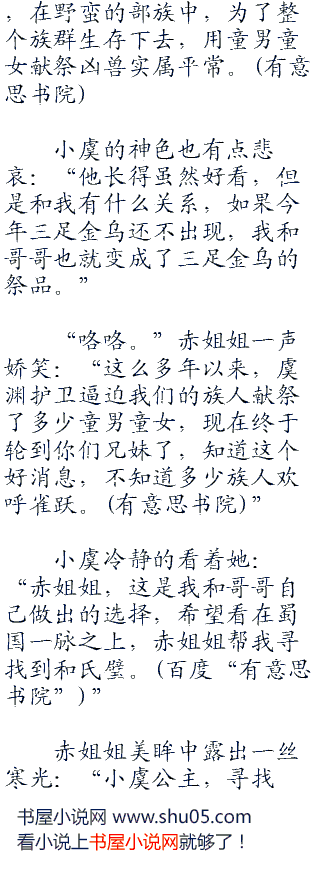 ，在野蛮的部族中，为了整
个族群生存下去，用童男童
女献祭凶兽实属平常。(有意
思书院)
小虞的神色也有点悲
哀：“他长得虽然好看，但
是和我有什么关系，如果今
年三足金乌还不出现，我和
哥哥也就变成了三足金乌的
祭品。”
“咯咯。”赤姐姐一声
娇笑：“这么多年以来，虞
渊护卫逼迫我们的族人献祭
了多少童男童女，现在终于
轮到你们兄妹了，知道这个
好消息，不知道多少族人欢
呼雀跃。(有意思书院)”
小虞冷静的看着她：
“赤姐姐，这是我和哥哥自
己做出的选择，希望看在蜀
国一脉之上，赤姐姐帮我寻
找到和氏璧。(百度“有意思
书院”)”
赤姐姐美眸中露出一丝
寒光：“小虞公主，寻找
书屋小说网 www.shu05.com
看小说上书屋小说网就够了！